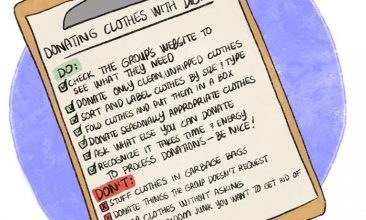 DONATING CLOTHES WITH
DO:
CHECK THE GROUP'S WEBSITE TO
SEE WHAT THEY NEED
DONATE ONLY CLEAN, UNRIPPED CLOTHES
SORT AND LABEL CLOTHES BY SIZE & TYPE
FOLD CLOTHES AND PUT THEM IN A BOX
DONATE SEASONALLY APPROPRIATE CLOTHES
ASK WHAT ELSE YOU CAN DONATE
RECOGNIZE IT TAKES TIME & ENERGY
TO PROCESS DONATIONS - BE NICE!
DON'T:
STUFF CLOTHES IN GARBAGE BAGS
DONATE THINGS THE GROUP DOESN'T REQUEST
CLOTHES WITHOUT ASKING
JUNK YOU WANT TO GET RID OF